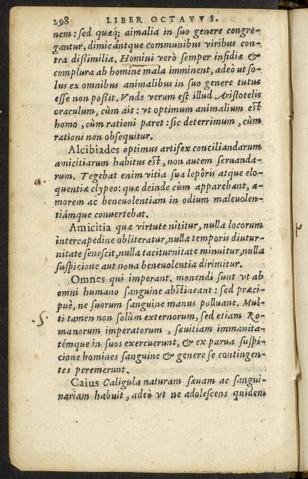 298 LIBER OCTAVVS.
nem: sed quæq; aĩmalia in suo genere congre-
gantur, dimicántque communibus viribus con-
tra dißimilia. Homini verò semper infidiæ &
complura ab homine mala imminent, adeò ut so-
lus ex omnibus animalibus in suo genere tutus
esse non poßit. Vnde verum est illud Aristotelis
oraculum, cùm ait: vt optimum animalium est
homo, cùm rationi paret: sic deterrimum, cùm
rationi non obsequitur.
Alcibiades optimus artifex conciliandarum
amicitiarum habitus est, non autem seruanda-
rum. Tegebat enim vitia sua leporis atque elo-
quentiæ clypeo: quæ deinde cùm apparebant, a-
morem ac beneuolentiam in odium maleuolen-
tiámque conuertebat.
Amicitia quæ virtute nititur, nulla locorum
intercapedine obliteratur, nulla temporis diutur-
nitate senescit, nulla taciturnitate minuitur, nulla
suspicione aut noua beneuolentia dirimitur.
Omnes qui imperant, monendi sunt vt ab
omni humano sanguine abstineant: sed præci-
puè, ne suorum sanguine manus polluant. Mul-
ti tamen non solùm externorum, sed etiam Ro-
manorum imperatorum, sæuitiam immanita-
témque in suos exercuerunt, & ex parua suspi-
cione homines sanguine & genere se contingen-
tes peremerunt.
Caius Caligula naturam sæuam ac sangui-
nariam habuit, adeò vt ne adolescens quidem